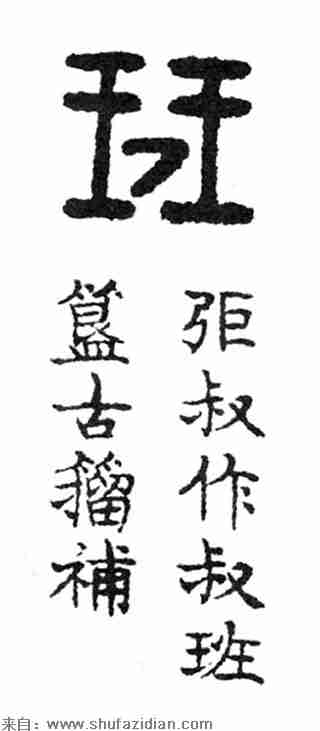 班
叔作叔班
古籀補
来自：www.shufazidian.com